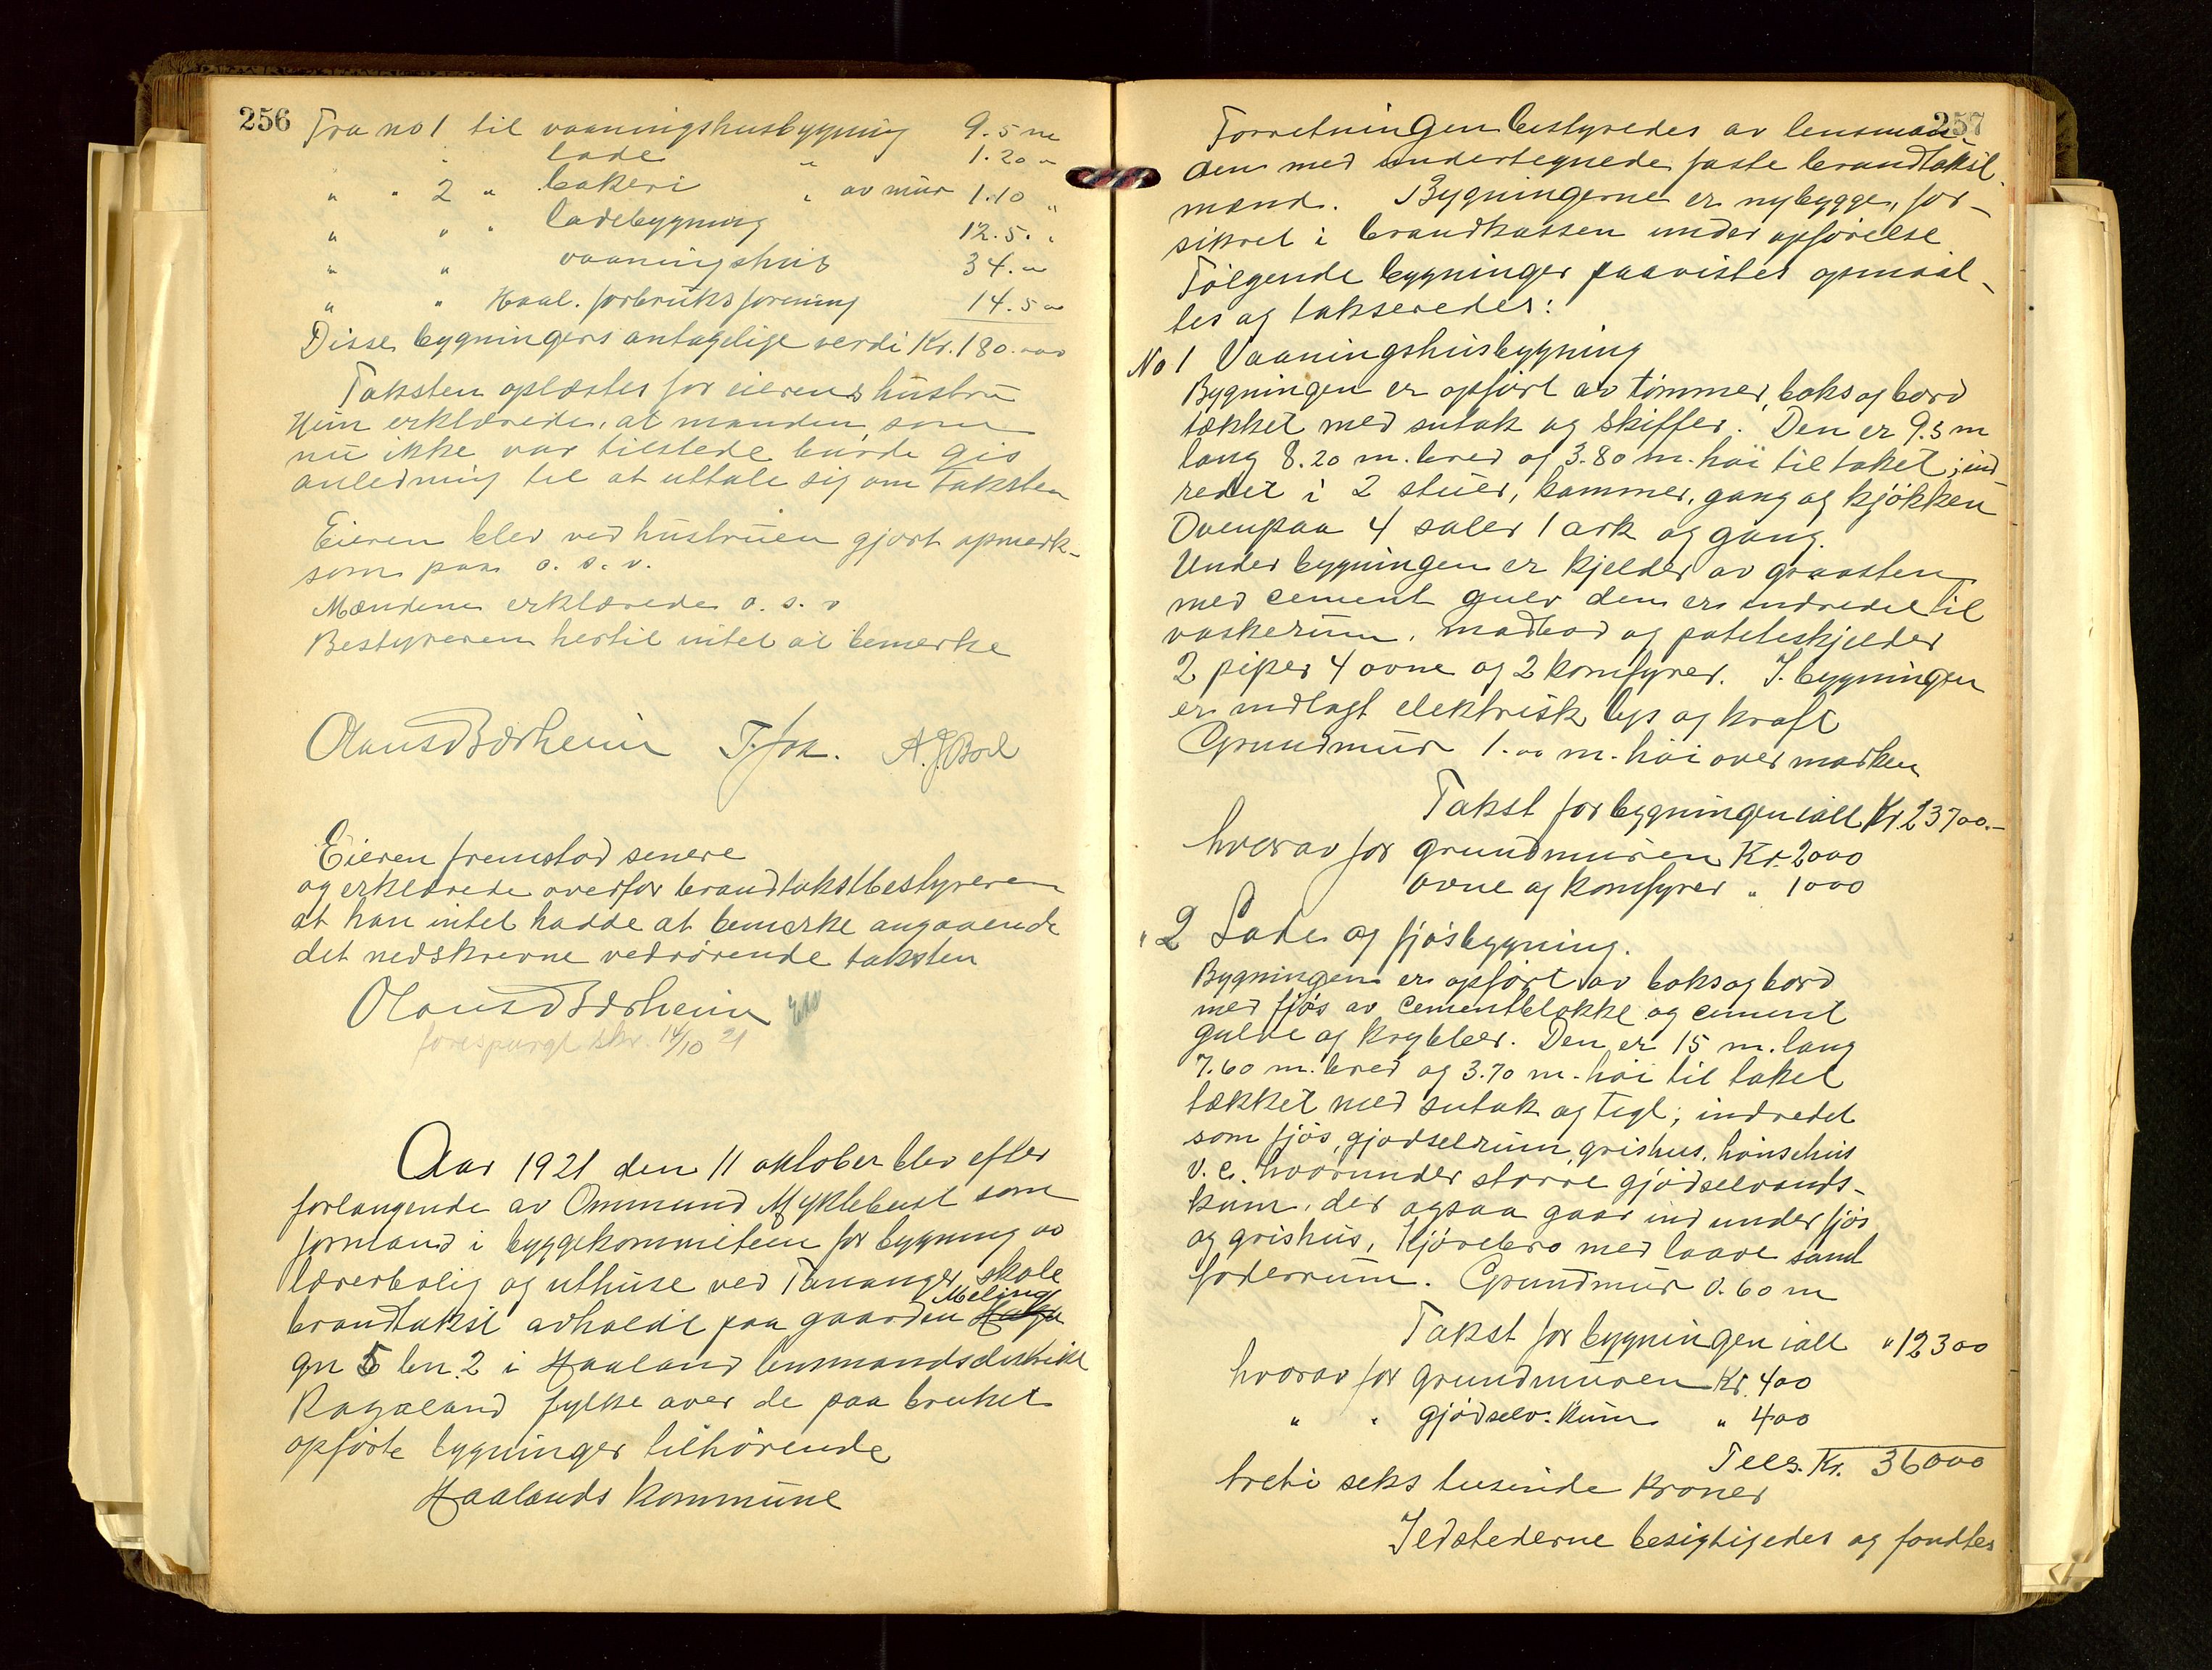 256
Fra no 1 til vaaningshusbygning 9.5 m
" lade " 1.20 "
" " 2 " bakeri " av mur 1.10 "
" " " ladebygning 12.5. "
" " vaaningshus 34. "
" " Haal. forbruksforening 14.5 "
Disse bygningers antagelige verdi Kr. 180.000
Taksten oplæstes for eierens hustru
Hun erklærede, at manden, som
nu ikke var tilstede burde gis
anledning til at uttale sig om taksten
Eieren blev ved hustruen gjort opmerk-
som paa o. s. v.
Mændene erklærede o. s. v
Bestyreren hertil intet at bemerke
Olaus Bærheim T. Joa. A. J. Bøe
Eieren fremstod senere
og erklærede overfor brandtakstbestyreren
at han intet hadde at bemerke angaaende
det nedskrevne vedrørende taksten
Olaus Bærheim
forespurgt skr. 14/10 21
Aar 1921 den 11 oktober blev efter
forlangende av Ommund Myklebust som
formand i byggekommiteen for bygning av
lærerbolig og uthuse ved Tananger skole
Meling
brandtakst avholdt paa gaarden
gn 5 bn. 2 i Haaland lensmandsdistrikt
Rogaland fylke over de paa bruket
opførte bygninger tilhørende
Haalands kommune
257
Forretningen bestyredes av lensman
den med undertegnede faste brandtakst
mænd. Bygningerne er nybygge, for-
sikret i brandkassen under opførelse
Følgende bygninger paavistes opmaal-
tes og takseredes:
No 1 Vaaningshusbygning
Bygningen er opført av tømmer, boks og bord
tækket med sutak og skiffer. Den er 9.5 m
lang 8.20 m. bred og 3.80 m. høi til taket; ind
redet i 2 stuer, kammer, gang og kjøkken
Ovenpaa 4 saler 1 ark og gang.
Under bygningen er kjelder av graasten
med cement gulv den er indredet til
vaskerum, madbod og poteteskjelder
2 piper 4 ovne og 2 komfyrer. I bygningen
er indlagt elektrisk lys og kraft
Grundmur 1.00 m. høi over marken
Takst for bygningen ialt Kr. 23700.-
hvorav for grundmuren Kr. 2000
ovne og komfyrer " 1000
" 2 Lade og fjøsbygning.
Bygningen er opført av boks og bord
med fjøs av cementblokke og cement
gulve og krybber. Den er 15 m. lang
7.60 m. bred og 3.70 m. høi til taket
tækket med sutak og tegl; indredet
som fjøs, gjødselrum, grishus, hønsehus
v. c. hvorunder større gjødselvands-
kum, der ogsaa gaar ind under fjøs
og grishus, kjørebro med laave samt
foderrum. Grundmur 0.60 m
Takst for bygningen ialt " 12300
hvorav for grundmuren Kr. 400
" " gjødselv. kum " 400
Tils. Kr. 36000
treti seks tusinde kroner
Ildstederne besigtigedes og fandtes